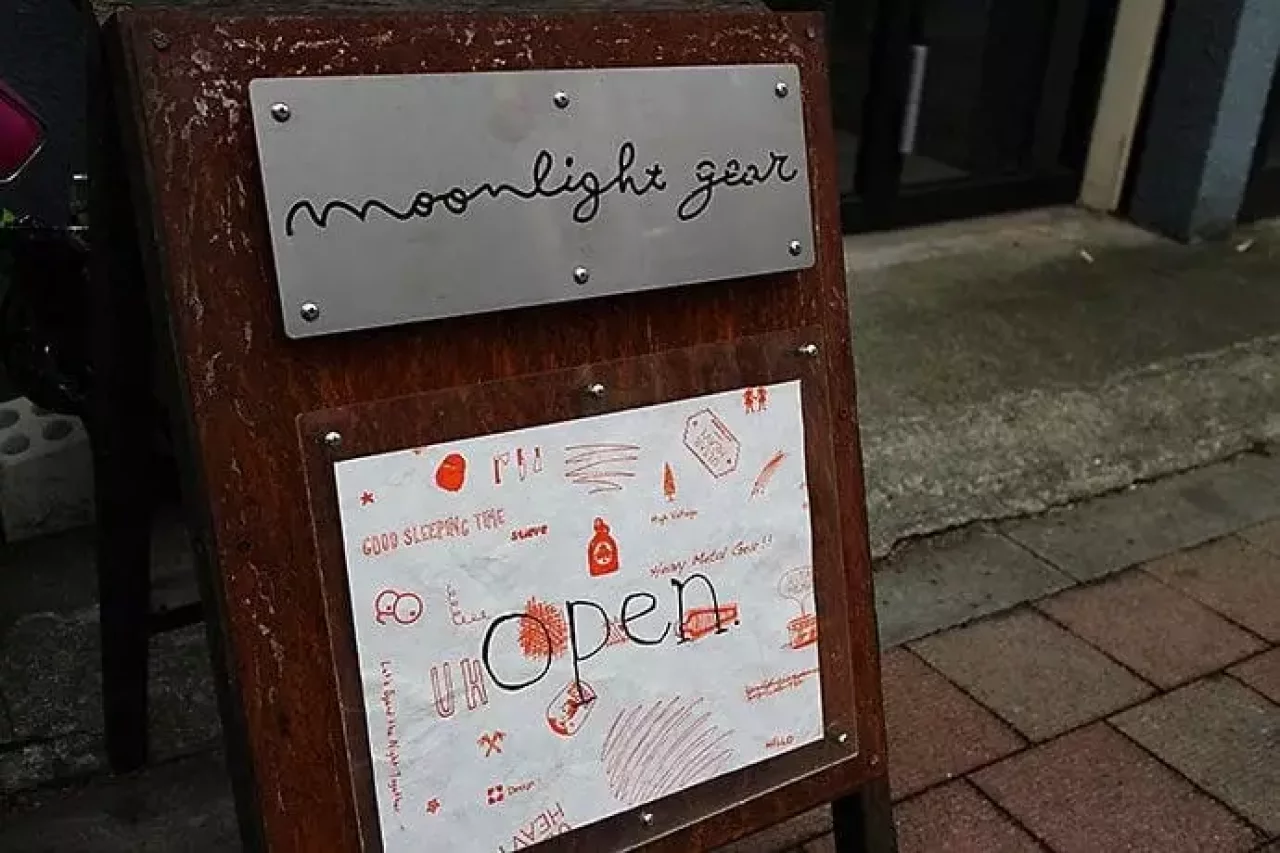 moonlight gear
GOOD SLEEPING TIME
High Voltage
Heavy Metal Gear!!
open.
UH
Let's Spend the Night Together
HELLO
Design
HEAV